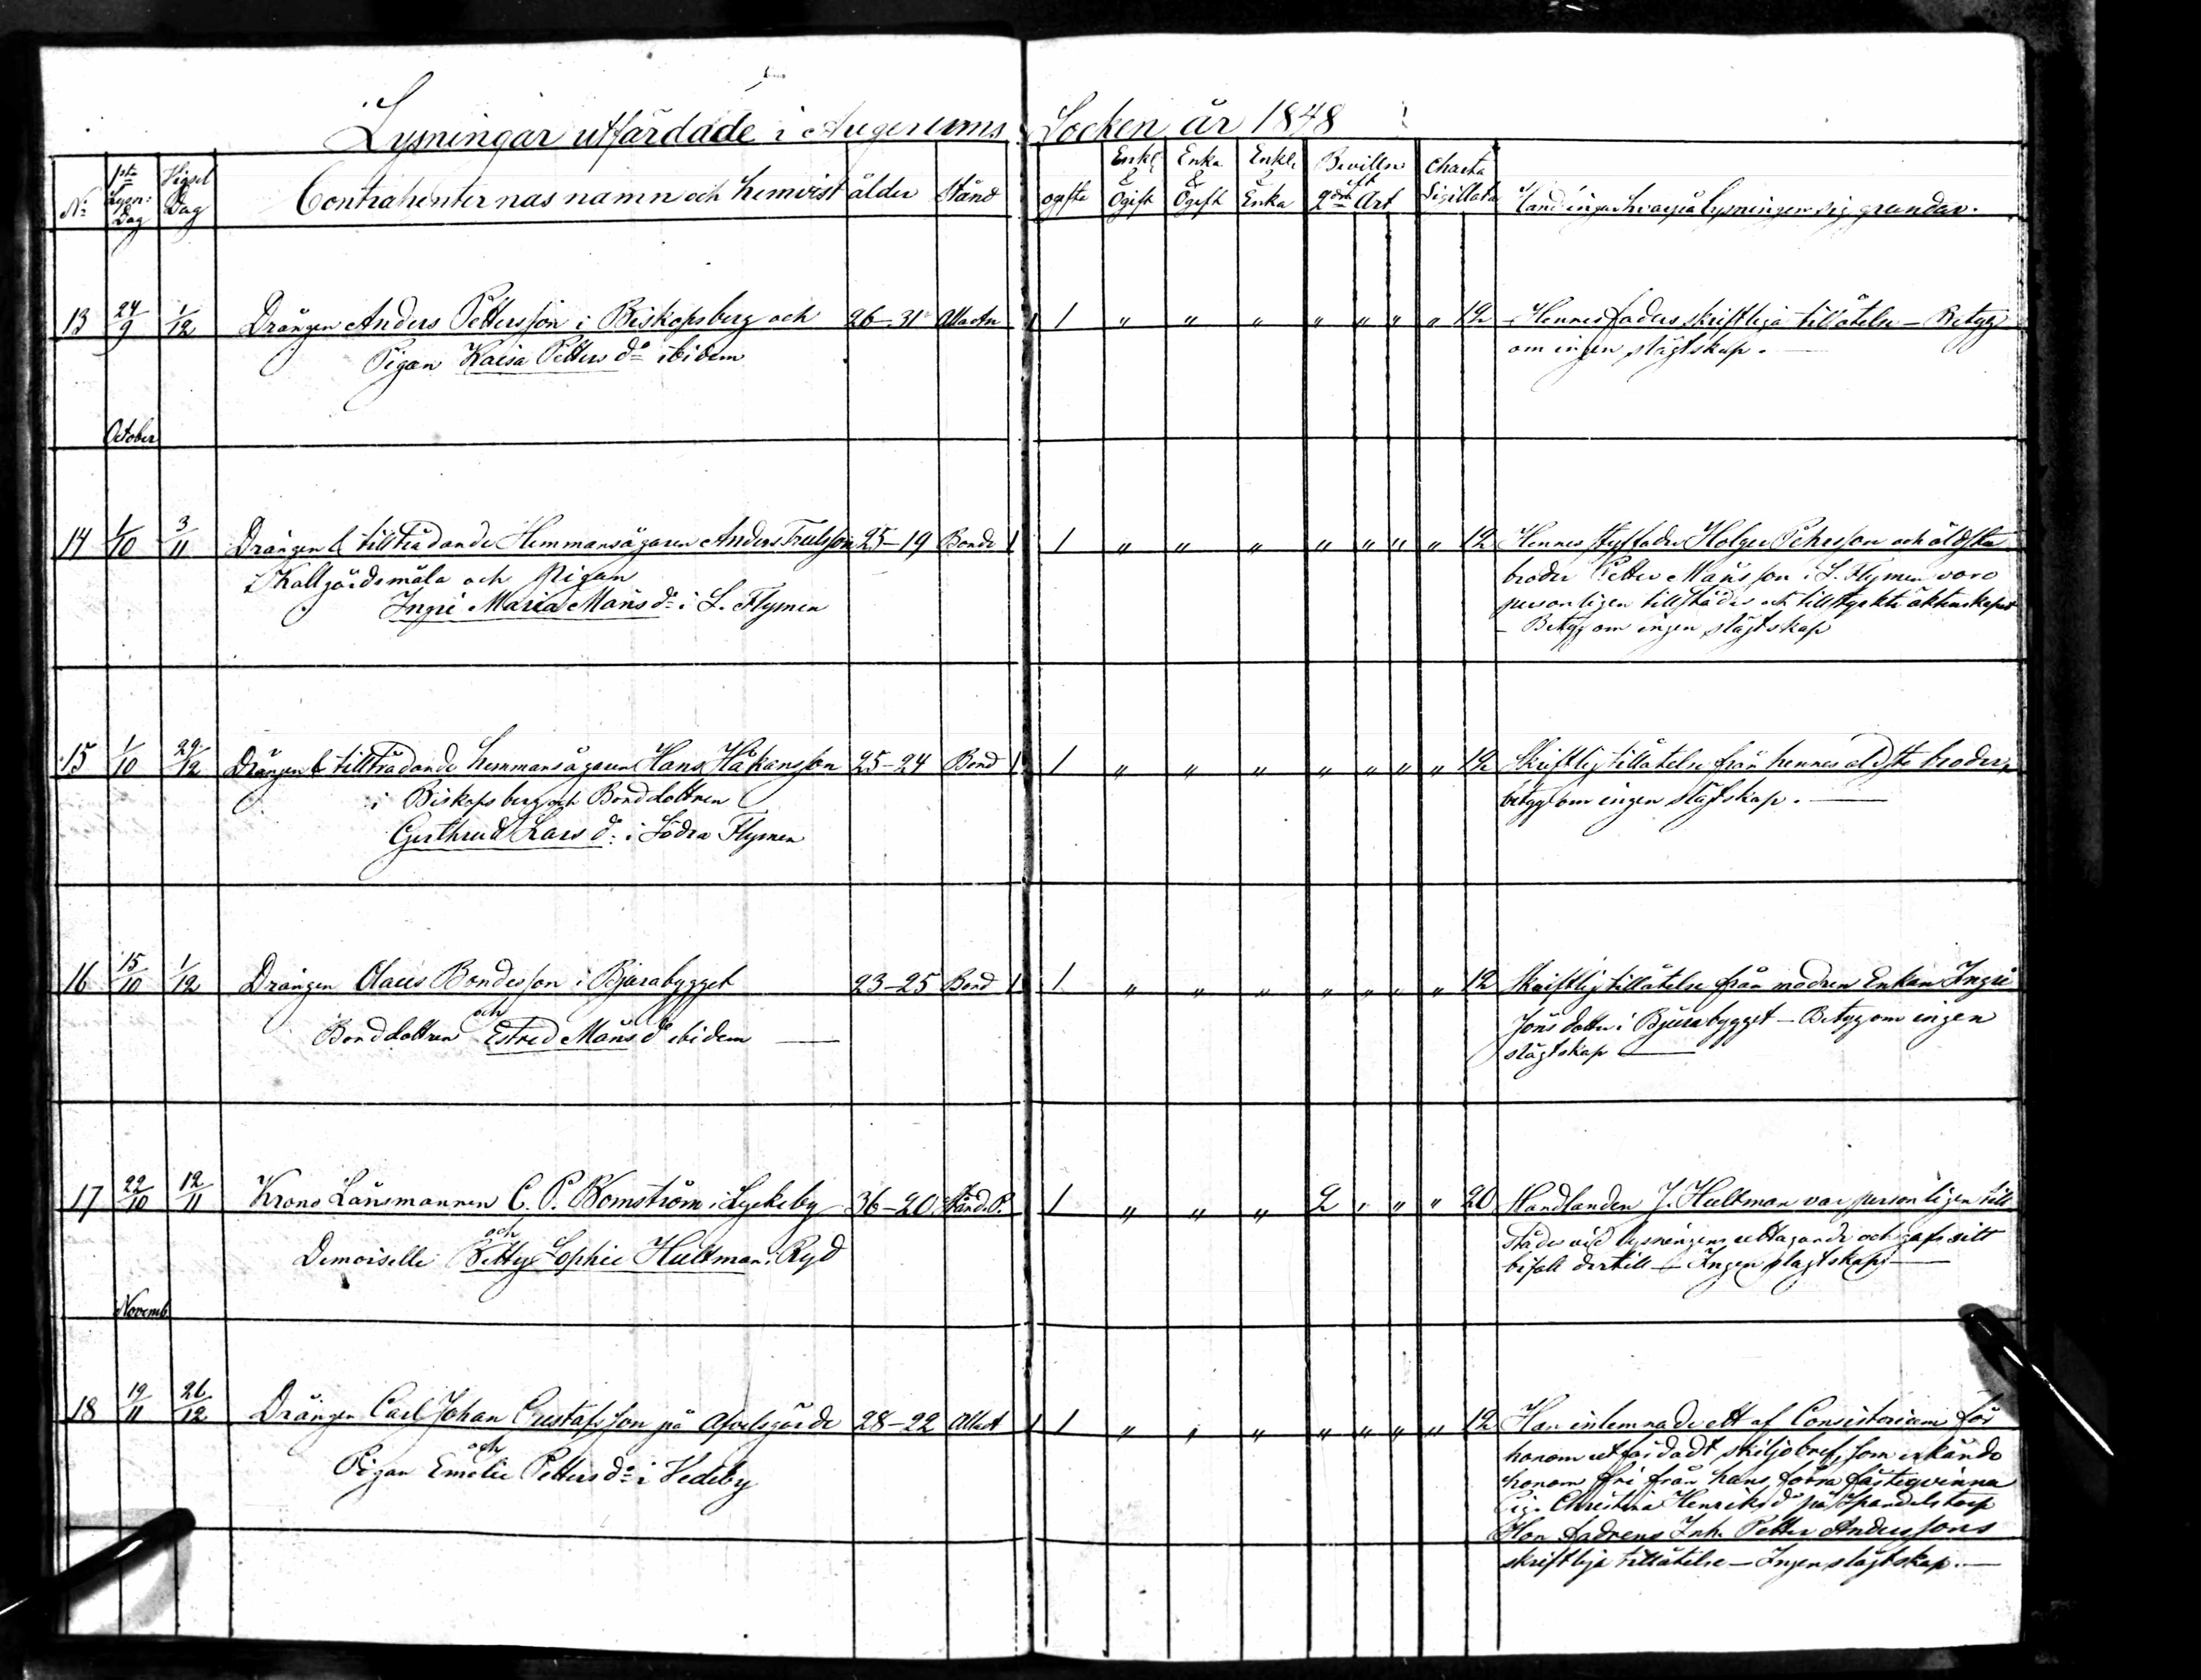 Lysningar utfärdade i Augerums Socken år 1848
No 1sta Lysn: Dag Vigsel Dag Contrahenternas namn och hemvist ålder Stånd ogifte Enkl. & Ogift Enka & Ogift Enkl. & Enka Bevilln eft 2dra Art Charta Sigillata Handlingar hvarpå lysningen sig grundar.
13 24/9 1/12 Drängen Anders Pettersson i Biskopsberg och 26-31 1 " " " " " " " 12 Hennes faders skriftliga tillåtelse - Betyg
Pigan Kaisa Petters dr ibidem om ingen slägtskap.
October
14 1/10 3/11 Drängen & tillträdande Hemmansägaren Anders Trulsson 25-19 Bonde 1 1 " " " " " " " 12 Hennes styffader Holger Pehrsson och äldsta
i Kallgårdsmåla och Pigan broder Petter Månsson i S. Flymen voro
Ingri Maria Måns dr i S. Flymen personligen tillstädes och tillstyrkte äktenskapet
- Betyg om ingen slägtskap
15 1/10 29/12 Drängen & tillträdande hemmansägaren Hans Håkansson 25-24 Bond 1 1 " " " " " " " 12 Skriftlig tillåtelse från hennes äldste broder,
i Biskopsberg och Bonddottren betyg om ingen slägtskap.
Gerthrud Lars dr i Södra Flymen
16 15/10 1/12 Drängen Olaus Bondesson i Bjurabygget 23-25 Bond 1 1 " " " " " " " 12 Skriftlig tillåtelse från modren Enkan Ingri
och
Bonddottren Estrid Måns dr ibidem Jöns dotter i Bjurabygget - Betyg om ingen
slägtskap
17 22/10 12/11 Krono Länsmannen C. P. Blomström i Lyckeby 36-20 Stånds P. 1 " " " 2 " " " 20 Handlanden J. Hultman var personligen till
och
Demoiselle Betty Sophie Hultman i Ryd städes vid lysningens uttagande och gaf sitt
bifall dertill - Ingen slägtskap
Novemb
18 19/11 26/12 Drängen Carl Johan Gustafsson på Afvelsgärde 28-22 1 1 " " " " " " " 12 Han inlemnade ett af Consistorium för
och
Pigan Emelie Petters dr i Vedeby honom utfärdadt skiljobref, som erkände
honom fri från hans förra fästeqvinna
Pig. Christina Henriks dr på Spandelstorp
Hon fadrens Inh. Petter Anderssons
skriftliga tillåtelse - Ingen slägtskap.